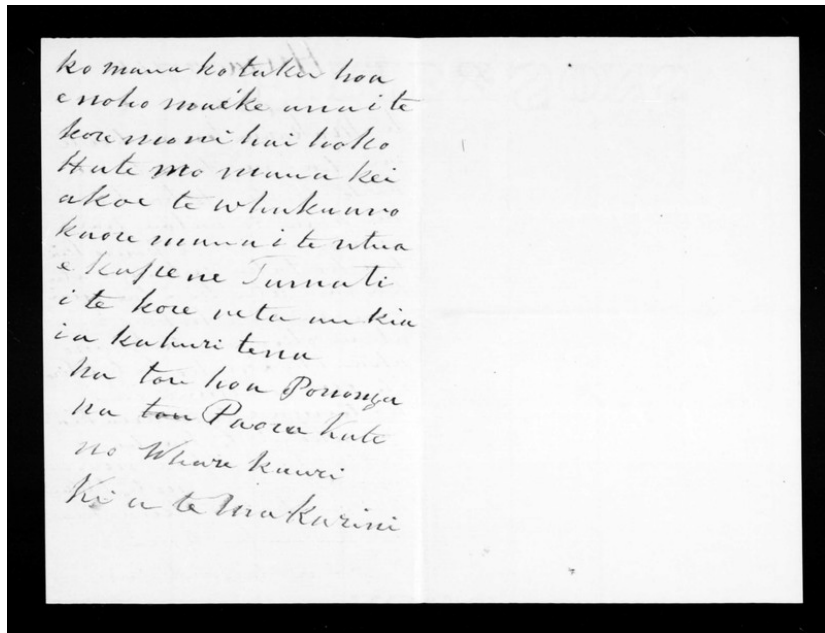 ko maua ko taku hoa
e noho maeke ana i te
kore moni hai hoko
Hate mo maua kei
a koe te whakaaro
kaore maua i te utua
e kapene Tamati
i te kore reta au kia
ia kahuri tena
na tou hoa Pononga
na tou Paora Kate
no Wharekauri
Ki a te Makarini